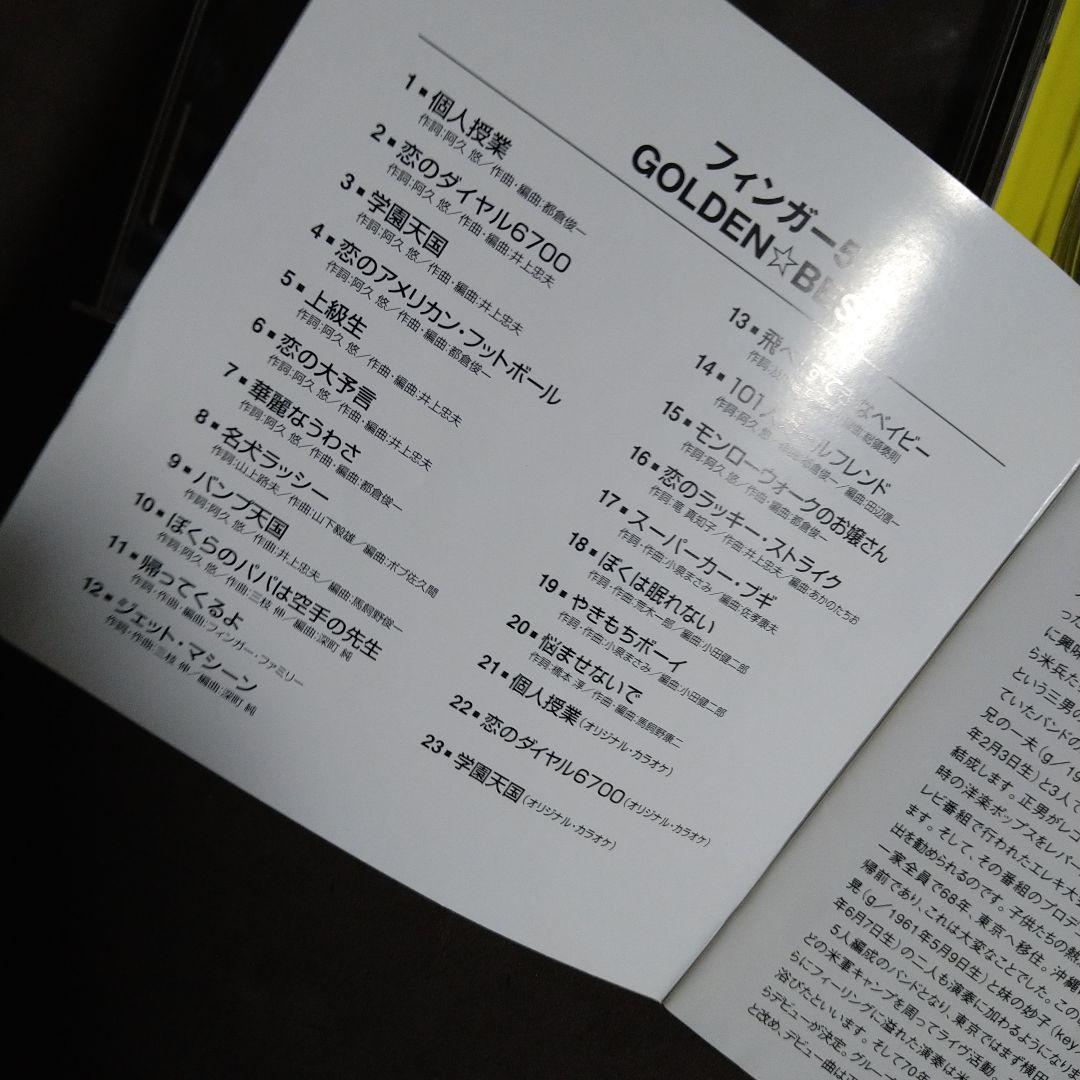 フィンガー5
GOLDEN☆BES
1■個人授業
作詞:阿久 悠／作曲・編曲:都倉俊一
2■恋のダイヤル6700
作詞:阿久 悠／作曲・編曲:井上忠夫
3■学園天国
作詞:阿久 悠／作曲・編曲:井上忠夫
4■恋のアメリカン・フットボール
作詞:阿久 悠／作曲・編曲:都倉俊一
5■上級生
作詞:阿久 悠／作曲・編曲:井上忠夫
6■恋の大予言
作詞:阿久 悠／作曲・編曲:井上忠夫
7■華麗なうわさ
作詞:阿久 悠／作曲・編曲:都倉俊一
8■名犬ラッシー
作詞:山上路夫／作曲:山下毅雄／編曲:ボブ佐久間
9■バンプ天国
作詞:阿久 悠／作曲:井上忠夫／編曲:馬飼野俊一
10■ぼくらのパパは空手の先生
作詞:阿久 悠／作曲:三枝 伸／編曲:深町 純
11■帰ってくるよ
作詞・作曲・編曲:フィンガー・ファミリー
12■ジェット・マシーン
作詞・作曲:三枝 伸／編曲:深町 純
13■飛べ なベイビー
作詞: 編曲:惣領泰則
14■101 ルフレンド
作詞:阿久 悠 都倉俊一／編曲:田辺信一
15■モンローウォークのお嬢さん
作詞:阿久 悠／作曲・編曲:都倉俊一
16■恋のラッキー・ストライク
作詞:竜 真知子／作曲:井上忠夫／編曲:あかのたちお
17■スーパーカー・ブギ
作詞・作曲:小泉まさみ／編曲:佐孝康夫
18■ぼくは眠れない
作詞・作曲:荒木一郎／編曲:小田健二郎
19■やきもちボーイ
作詞・作曲:小泉まさみ／編曲:小田健二郎
20■悩ませないで
作詞:橋本 淳／作曲・編曲:馬飼野康二
21■個人授業(オリジナル・カラオケ)
22■恋のダイヤル6700(オリジナル・カラオケ)
23■学園天国(オリジナル・カラオケ)
った
に興味
ら米兵た
という三男の
ていたバンドの
兄の一夫(g／19
年2月3日生)と3人で
結成します。正男がレコ
時の洋楽ポップスをレパー
レビ番組で行われたエレキ大
ます。そして、その番組のプロデ
出を勧められるのです。子供たちの熱
一家全員で68年、東京へ移住。沖縄
帰前であり、これは大変なことでした。この
晃(g／1961年5月9日生)と妹の妙子(key
年6月7日生)の二人も演奏に加わるようになりま
5人編成のバンドとなり、東京ではまず横田
どの米軍キャンプを周ってライヴ活動
らにフィーリングに溢れた演奏は米
浴びたといいます。そして70年
らデビューが決定。グルー
と改め、デビュー曲は